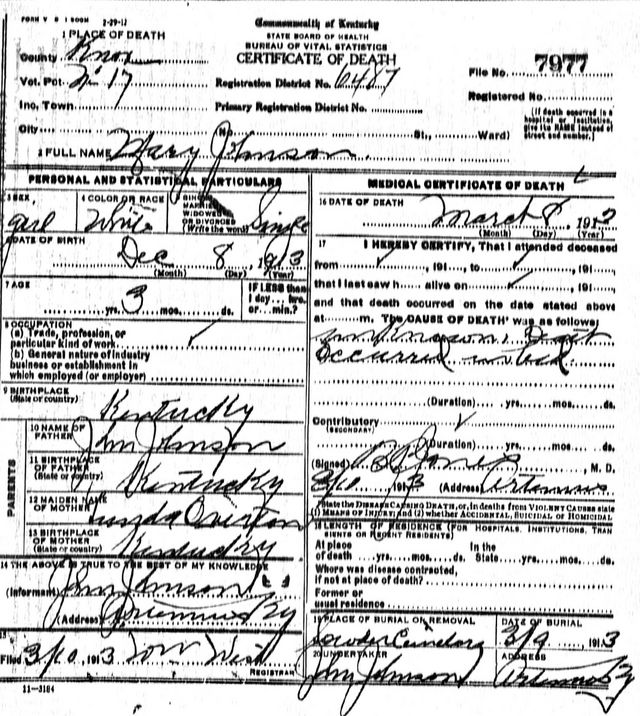 FORM V S 1 500M 2-29-12
Commonwealth of Kentucky
STATE BOARD OF HEALTH
BUREAU OF VITAL STATISTICS
CERTIFICATE OF DEATH
1 PLACE OF DEATH
County Knox
Vot. Pct. No 17
Inc. Town
City
Registration District No. 6487
Primary Registration District No.
File No. 7977
Registered No.
(If death occurred in a hospital or institution, give its NAME instead of street and number.)
No. St., Ward)
2 FULL NAME Mary Johnson
PERSONAL AND STATISTICAL PARTICULARS
3 SEX, girl
4 COLOR OR RACE White
SINGLE MARRIED WIDOWED OR DIVORCED (Write the word) Single
6 DATE OF BIRTH
Dec 8 1913
(Month) (Day) (Year)
7 AGE
yrs. 3 mos. ds.
IF LESS than 1 day... hrs. or... min.?
8 OCCUPATION
(a) Trade, profession, or
particular kind of work
(b) General nature of industry
business or establishment in
which employed (or employer)
9 BIRTHPLACE
(State or country) Kentucky
PARENTS
10 NAME OF FATHER John Johnson
11 BIRTHPLACE OF FATHER (State or country) Kentucky
12 MAIDEN NAME OF MOTHER
13 BIRTHPLACE OF MOTHER (State or country) Kentucky
14 THE ABOVE IS TRUE TO THE BEST OF MY KNOWLEDGE
(Informant) John Johnson
(Address) Artemus Ky
15
Filed 3/10, 1913
REGISTRAR
11-3184
MEDICAL CERTIFICATE OF DEATH
16 DATE OF DEATH
March 8, 1913
(Month) (Day) (Year)
17 I HEREBY CERTIFY, That I attended deceased
from , 191 , to , 191
that I last saw h alive on , 191
and that death occurred on the date stated above
at m. The CAUSE OF DEATH was as follows:
Occurred in bed
(Duration) yrs. mos. ds.
Contributory
(SECONDARY)
(Duration) yrs. mos. ds.
(Signed) Jones, M. D.
3/10 1913 (Address) Artemus
State the DISEASE CAUSING DEATH, or, in deaths from VIOLENT CAUSES state
(1) MEANS OF INJURY; and (2) whether ACCIDENTAL, SUICIDAL or HOMICIDAL.
18 LENGTH OF RESIDENCE (FOR HOSPITALS, INSTITUTIONS, TRANSIENTS OR RECENT RESIDENTS)
At place of death yrs. mos. ds. In the State yrs. mos. ds.
Where was disease contracted,
if not at place of death?
Former or
usual residence
19 PLACE OF BURIAL OR REMOVAL
DATE OF BURIAL
3/9 1913
20 UNDERTAKER
John Johnson
ADDRESS
Artemus Ky